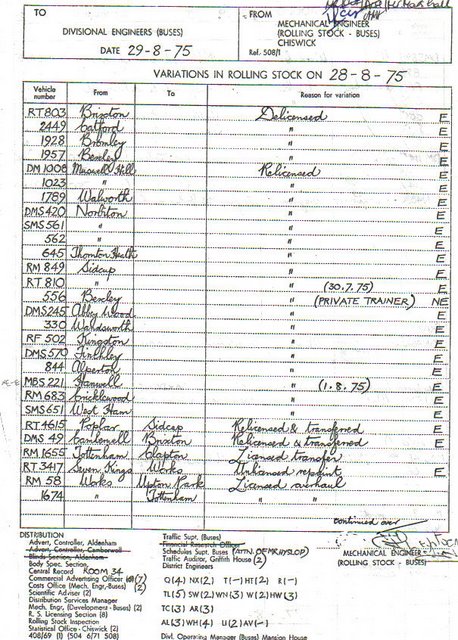 TO
DIVISIONAL ENGINEERS (BUSES)
DATE 29-8-75
FROM
MECHANICAL ENGINEER
(ROLLING STOCK - BUSES)
CHISWICK
Ref. 508/1
VARIATIONS IN ROLLING STOCK ON 28-8-75
Vehicle number From To Reason for variation
RT803 Brixton Delicensed E
2449 Catford " E
1928 Bromley " E
1957 Bexley " E
DM 1008 Muswell Hill Relicensed E
1023 " " E
1789 Walworth " E
DMS420 Norbiton " E
SMS561 " " E
562 " " E
645 Thornton Heath " E
RM 849 Sidcup " E
RT 810 " " (30.7.75) E
556 Bexley " (PRIVATE TRAINER) NE
DMS245 Abbey Wood " E
330 Wandsworth " E
RF 502 Kingston " E
DMS570 Finchley " E
844 Alperton " E
MBS221 Hanwell " (1.8.75) E
RM683 Cricklewood " E
SMS651 West Ham " E
RT4615 Poplar Sidcup Relicensed & transferred E
DMS 49 Camberwell Brixton Relicensed & transferred E
RM 1655 Tottenham Clapton Licensed transfer
RT 3417 Seven Kings Works Unlicensed repaint E
RM 58 Works Upton Park Licensed overhaul
1674 " Tottenham " "
continued over
DISTRIBUTION
Advert, Controller, Aldenham
Advert, Controller, Camberwell
Blinds Section, Aldenham
Body Spec. Section,
Central Record ROOM 34
Commercial Advertising Officer (7)
Costs Office (Mech. Engr, -Buses) (2)
Scientific Adviser (2)
Distribution Services Manager
Mech. Engr, (Development - Buses) (2)
R. S. Licensing Section (8)
Rolling Stock Inspection
Statistical Office - Chiswick (2)
408/69 (1) (504 6/71 508)
Traffic Supt, (Buses)
Financial Research Officer
Schedules Supt. Buses (ATTN. OF MR HYSLOP)
Traffic Auditor, Griffith House (2)
District Engineers
Q(4) NX(2) T(-) HT(2) R(-)
TL(5) SW(2) WN(3) W(2) HW(3)
TC(3) AR(3)
AL(3) WH(4) U(2) AV(-)
Divl. Operating Manager (Buses) Mansion House
MECHANICAL ENGINEER
(ROLLING STOCK - BUSES)